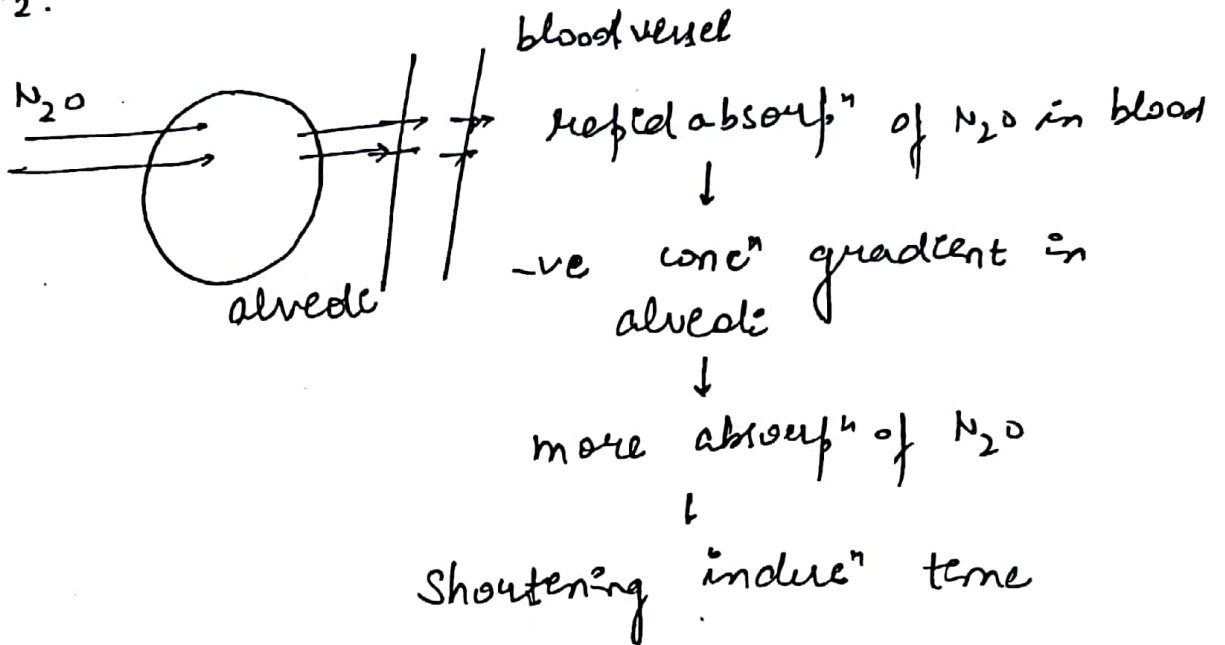 2.
blood vessel
N₂O
rapid absorpⁿ of N₂O in blood
↓
-ve concⁿ gradient in
alveoli
alveoli
↓
more absorpⁿ of N₂O
↓
Shortening inducⁿ time